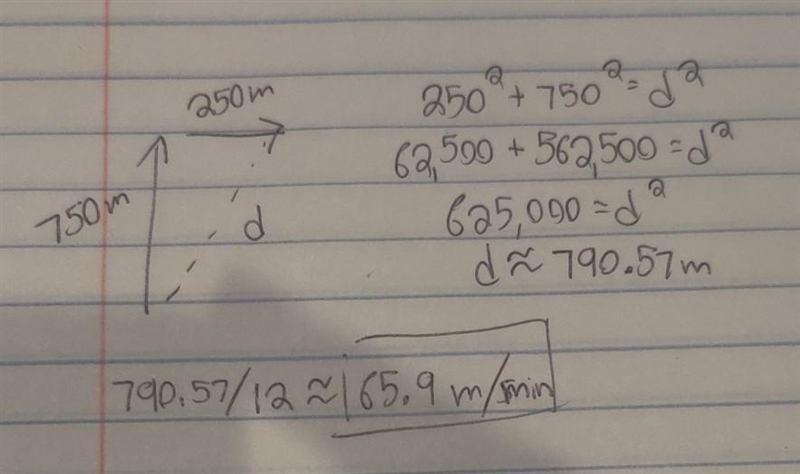 250m
750m
d
250² + 750² = d²
62,500 + 562,500 = d²
625,000 = d²
d ≈ 790.57 m
790.57/12 ≈ 65.9 m/min